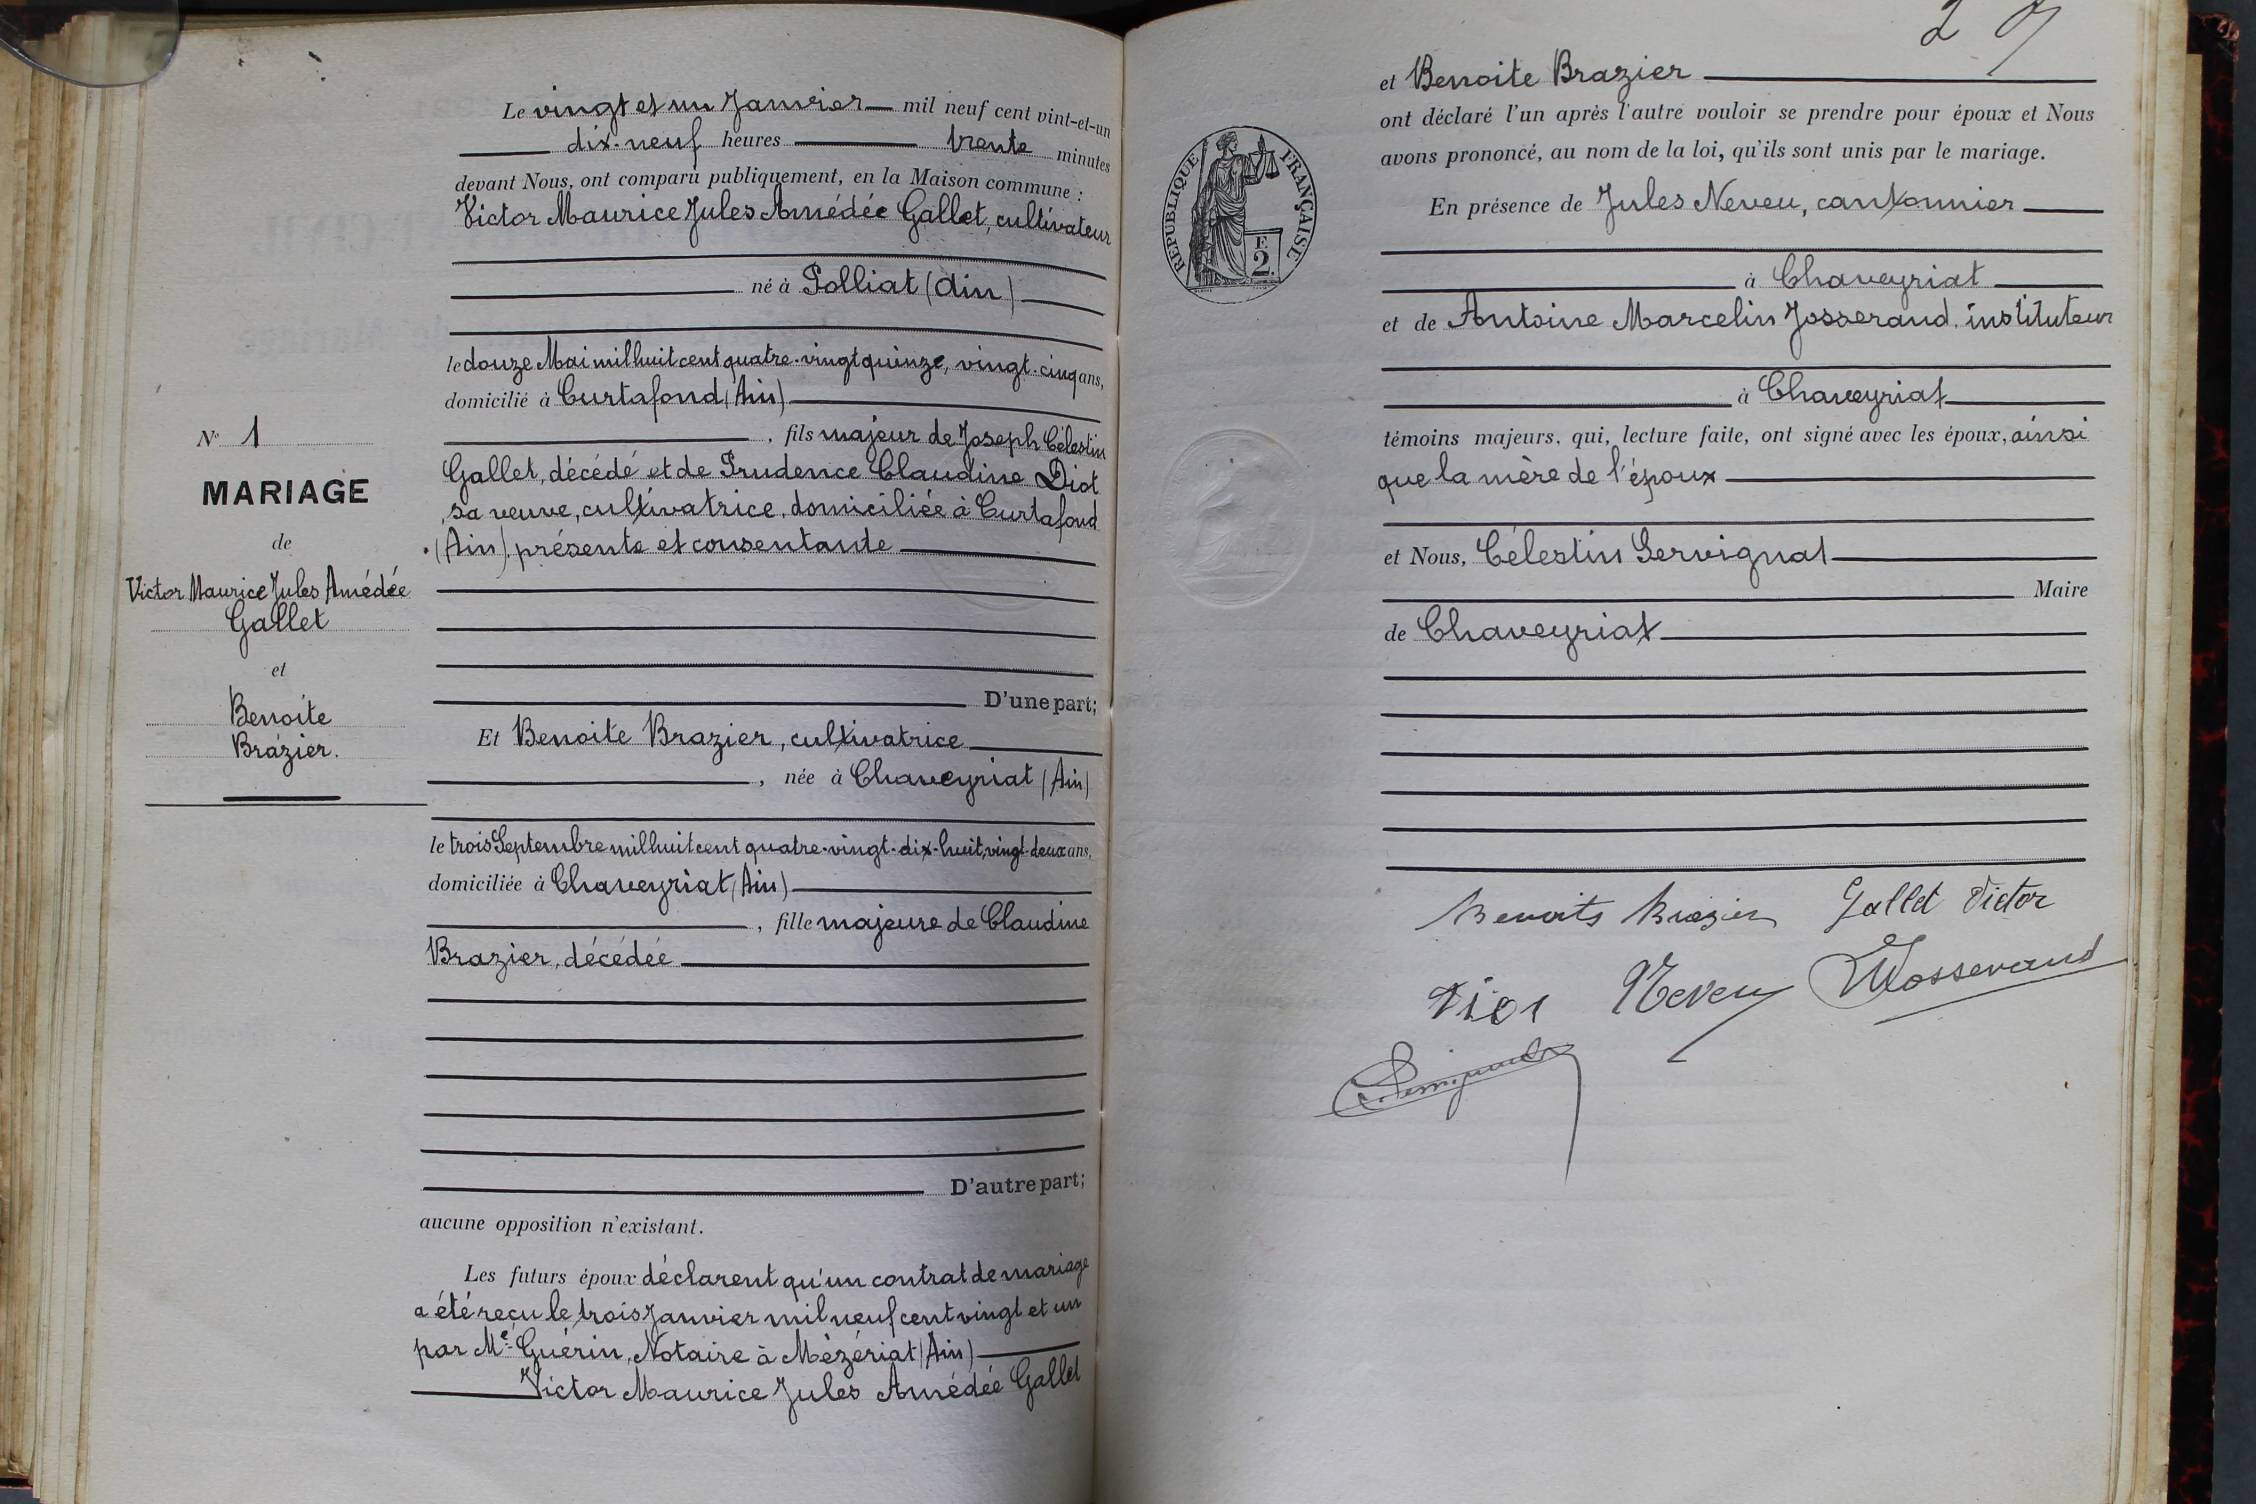 N° 1
MARIAGE
de
Victor Maurice Jules Amédée
Gallet
et
Benoite
Brazier.
Le vingt et un Janvier mil neuf cent vint-et-un
dix-neuf heures trente minutes
devant Nous, ont comparu publiquement, en la Maison commune :
Victor Maurice Jules Amédée Gallet, cultivateur
né à Polliat (Ain)
le douze Mai mil huit cent quatre-vingt quinze, vingt-cinq ans,
domicilié à Curtafond (Ain)
, fils majeur de Joseph Célestin
Gallet, décédé et de Prudence Claudine Diot
, sa veuve, cultivatrice, domiciliée à Curtafond
(Ain) présente et consentante
D'une part;
Et Benoite Brazier, cultivatrice
, née à Chaveyriat (Ain)
le trois Septembre mil huit cent quatre-vingt-dix-huit, vingt-deux ans,
domiciliée à Chaveyriat (Ain)
, fille majeure de Claudine
Brazier, décédée
D'autre part;
aucune opposition n'existant.
Les futurs époux déclarent qu'un contrat de mariage
a été reçu le trois Janvier mil neuf cent vingt et un
par Me Guérin, Notaire à Mézériat (Ain)
Victor Maurice Jules Amédée Gallet
2
et Benoite Brazier
ont déclaré l'un après l'autre vouloir se prendre pour époux et Nous
avons prononcé, au nom de la loi, qu'ils sont unis par le mariage.
RÉPUBLIQUE FRANÇAISE
F.
2.
En présence de Jules Neveu, cantonnier
à Chaveyriat
et de Antoine Marcelin Josserand, instituteur
à Chaveyriat
témoins majeurs, qui, lecture faite, ont signé avec les époux, ainsi
que la mère de l'époux
et Nous, Célestin Servignat
Maire
de Chaveyriat
Benoite Brazier Gallet Victor
Diot Neveu Josserand